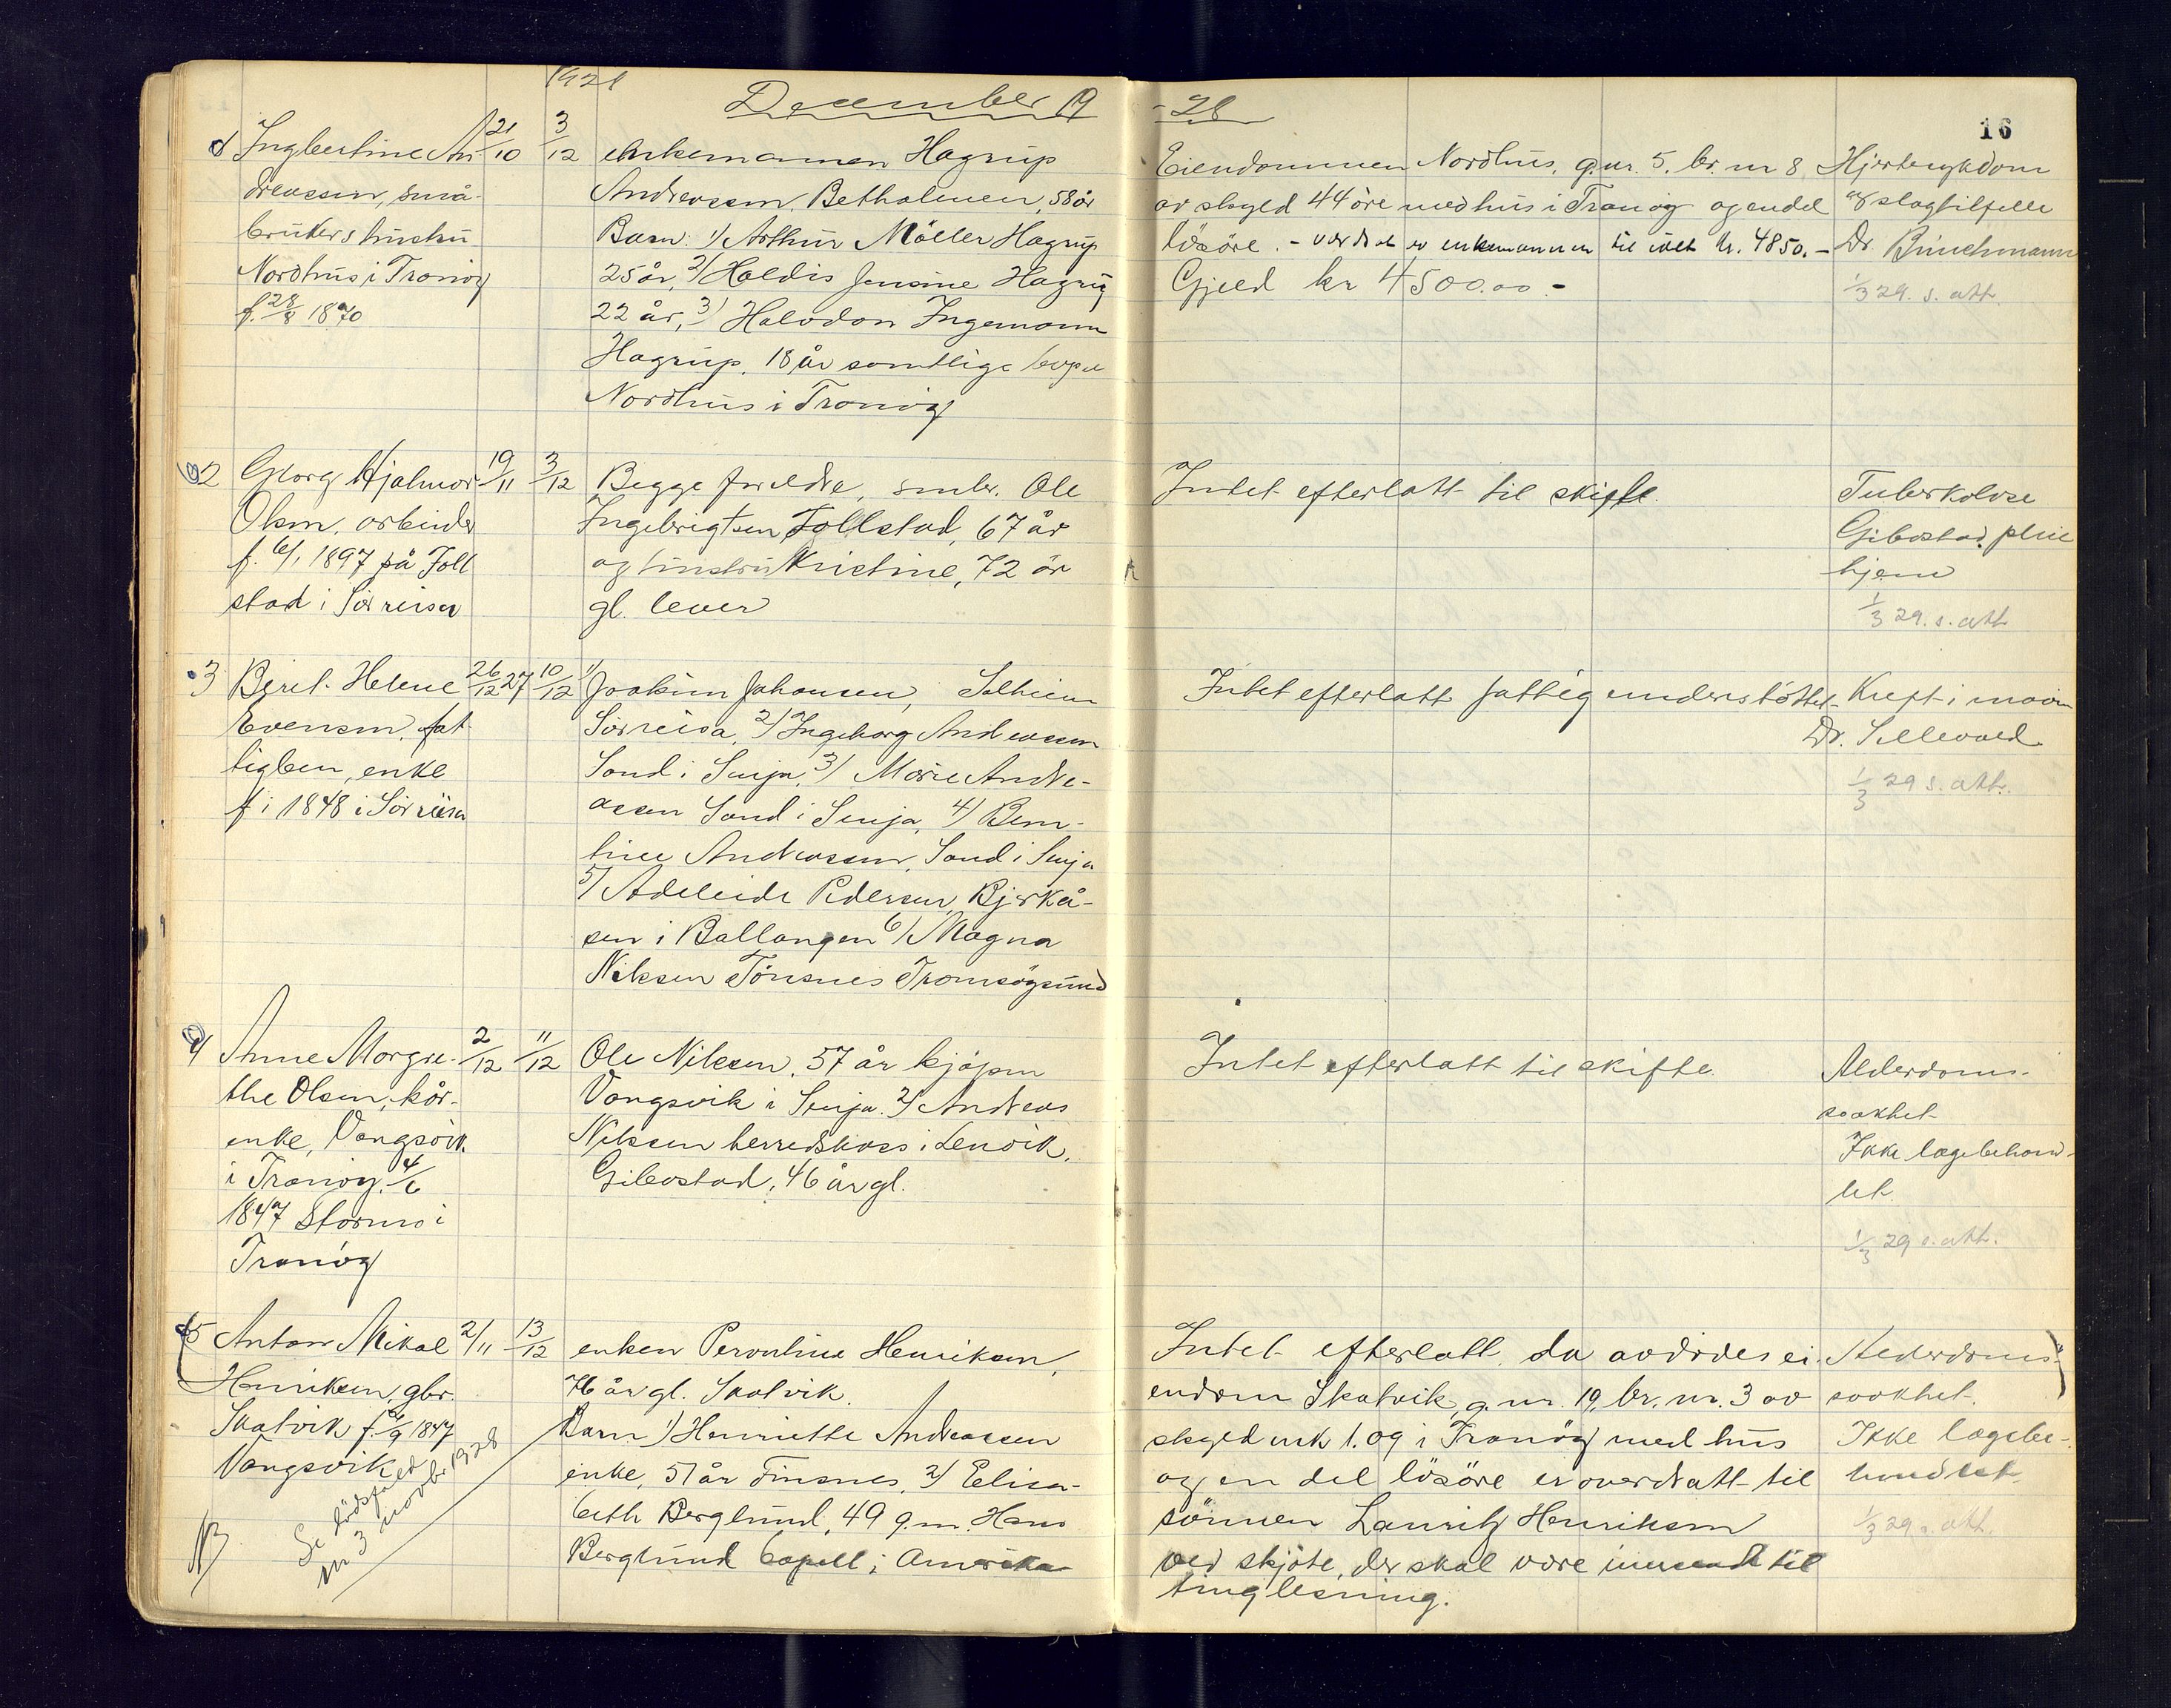 1928
December 19
-28
16
1 Ingbertine An- 21/10 3/12
dreassen, små-
brukers hustru
Nordhus i Tranöy
f. 28/8 1870
enkemannen Hagrup
Andreassen. Betholmen, 58 år
Barn: 1/ Arthur Möller Hagrup
25 år, 2/ Haldis Jensine Hagrup
22 år, 3/ Halvdan Ingemann
Hagrup, 18 år samtlige bopæl
Nordhus i Tranöy
Eiendommen Nordhus, g.nr. 5, br. nr 8
av skyld 44 öre med hus i Tranöy og en del
lösöre. - værdsat av enkemannen til ialt kr. 4850.-
Gjeld kr 4500.00.-
Hjertesykdom
og slagtilfelle
Dr. Bruchmann
1/3 29. s. att.
2 Georg Hjalmar 19/11 3/12
Olsen, arbeider
f. 6/1 1897 på Foll
stad i Sörreisa
Begge foreldre, småbr. Ole
Ingebrigtsen Follstad, 67 år
og hustru Kristine, 72 år
gl. lever
Intet efterlatt til skifte.
Tuberkolose
Gibostad pleie
hjem
1/3 29. s. att
3 Beret Helene 26/12 27 10/12
Evensen, fat
tiglem, enke
f i 1848 i Sörreisa
1/ Joakim Johansen, Solheim
Sörreisa, 2/ Ingeborg Andreassen
Sand i Senja, 3/ Marie Andre-
assen Sand i Senja, 4/ Bern-
tine Andreassen, Sand i Senja
5/ Adeleide Pedersen, Bjerkå-
sen i Ballangen 6/ Magna
Nilssen Tönsnes Tromsöysund
Intet efterlatt fattig understöttet
Kreft i maven
Dr. Sellevold
1/3 29 s. att.
4 Anne Margre- 2/12 11/12
the Olsen, kår-
enke, Vangsvik
i Tranöy, 4/6
1847 Stormo i
Tranöy
Ole Nilssen, 57 år kjöpm
Vangsvik i Senja. 2/ Andreas
Nilssen herredskass i Lenvik,
Gibostad, 46 år gl.
Intet efterlatt til skifte.
Alderdoms-
svakhet
Ikke lægebehand-
let.
1/3 29 s. att.
5 Anton Mikal 2/11 13/12
Henriksen, gbr.
Skatvik f. 6/9 1847
Vangsvik
NB
Se dödsfald
nr 3 novbr 1928
enken Peroline Henriksen,
76 år gl. Skatvik.
Barn 1/ Henriette Andreassen
enke, 51 år Finsnes, 2/ Elisa-
beth Berglund, 49 g.m. Hans
Berglund bopell i Amerika
Intet efterlatt, da avdödes ei-
endom Skatvik, g. nr. 19, br. nr. 3 av
skyld mk 1.09 i Tranöy med hus
og en del lösöre er overdratt til
sönnen Lauritz Henriksen
ved skjöte, der skal være innsendt til
tinglesning.
Alderdoms-
svakhet.
Ikke lægebe-
handlet.
1/3 29 s. att.